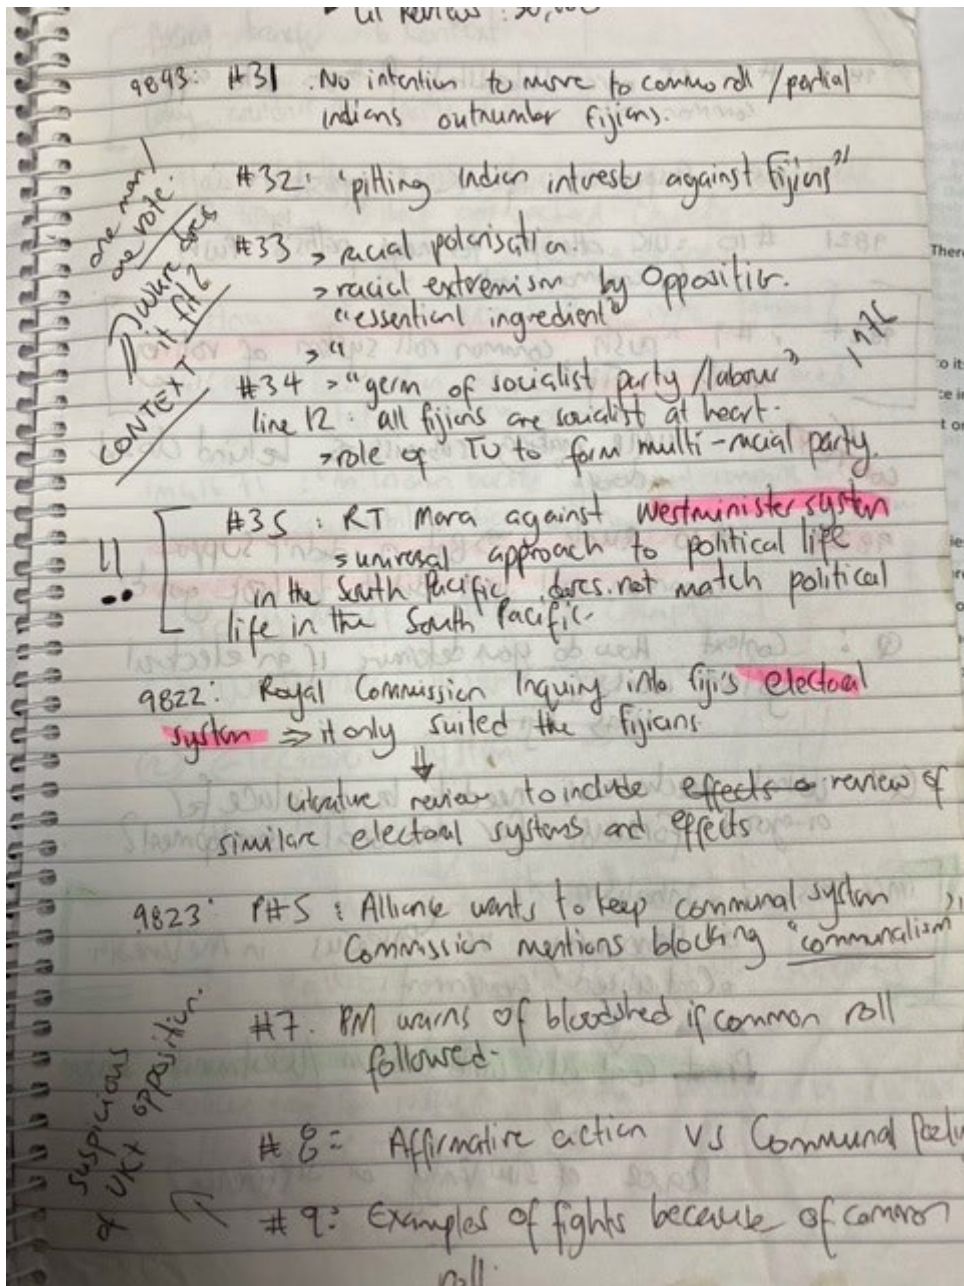 Lit Reviews : 30,000
9893: #31 . No intention to move to common roll / partial
indians outnumber fijians.
one man /
one vote.
where does
it fit?
CONTEXT
#32: "pitting Indian interests against fijians"
#33 > racial polarisation
> racial extremism by Opposition.
"essential ingredient"
> "
1976
#34 > "germ of socialist party / labour"
line 12 : all fijians are socialist at heart.
> role of TU to form multi-racial party.
!!
#35 : RT Mara against Westminister system
> universal approach to political life
in the South Pacific does not match political
life in the South Pacific.
9822: Royal Commission Inquiry into fiji's electoral
system => it only suited the fijians
Literature review to include effects review of
similare electoral systems and effects
9823: P#5 : Alliance wants to keep communal system
Commission mentions blocking "communalism"
suspicious
of UK + opposition.
#7. PM warns of bloodshed if common roll
followed.
#8= Affirmative action VS Communal
#9: Examples of fights because of common
roll.